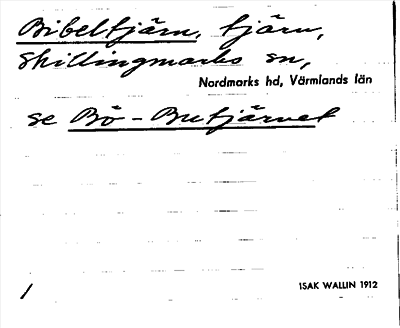 Bibeltjärn, tjärn,
Skillingmarks sn,
Nordmarks hd, Värmlands län
se Bö - Butjärnet
/
ISAK WALLIN 1912